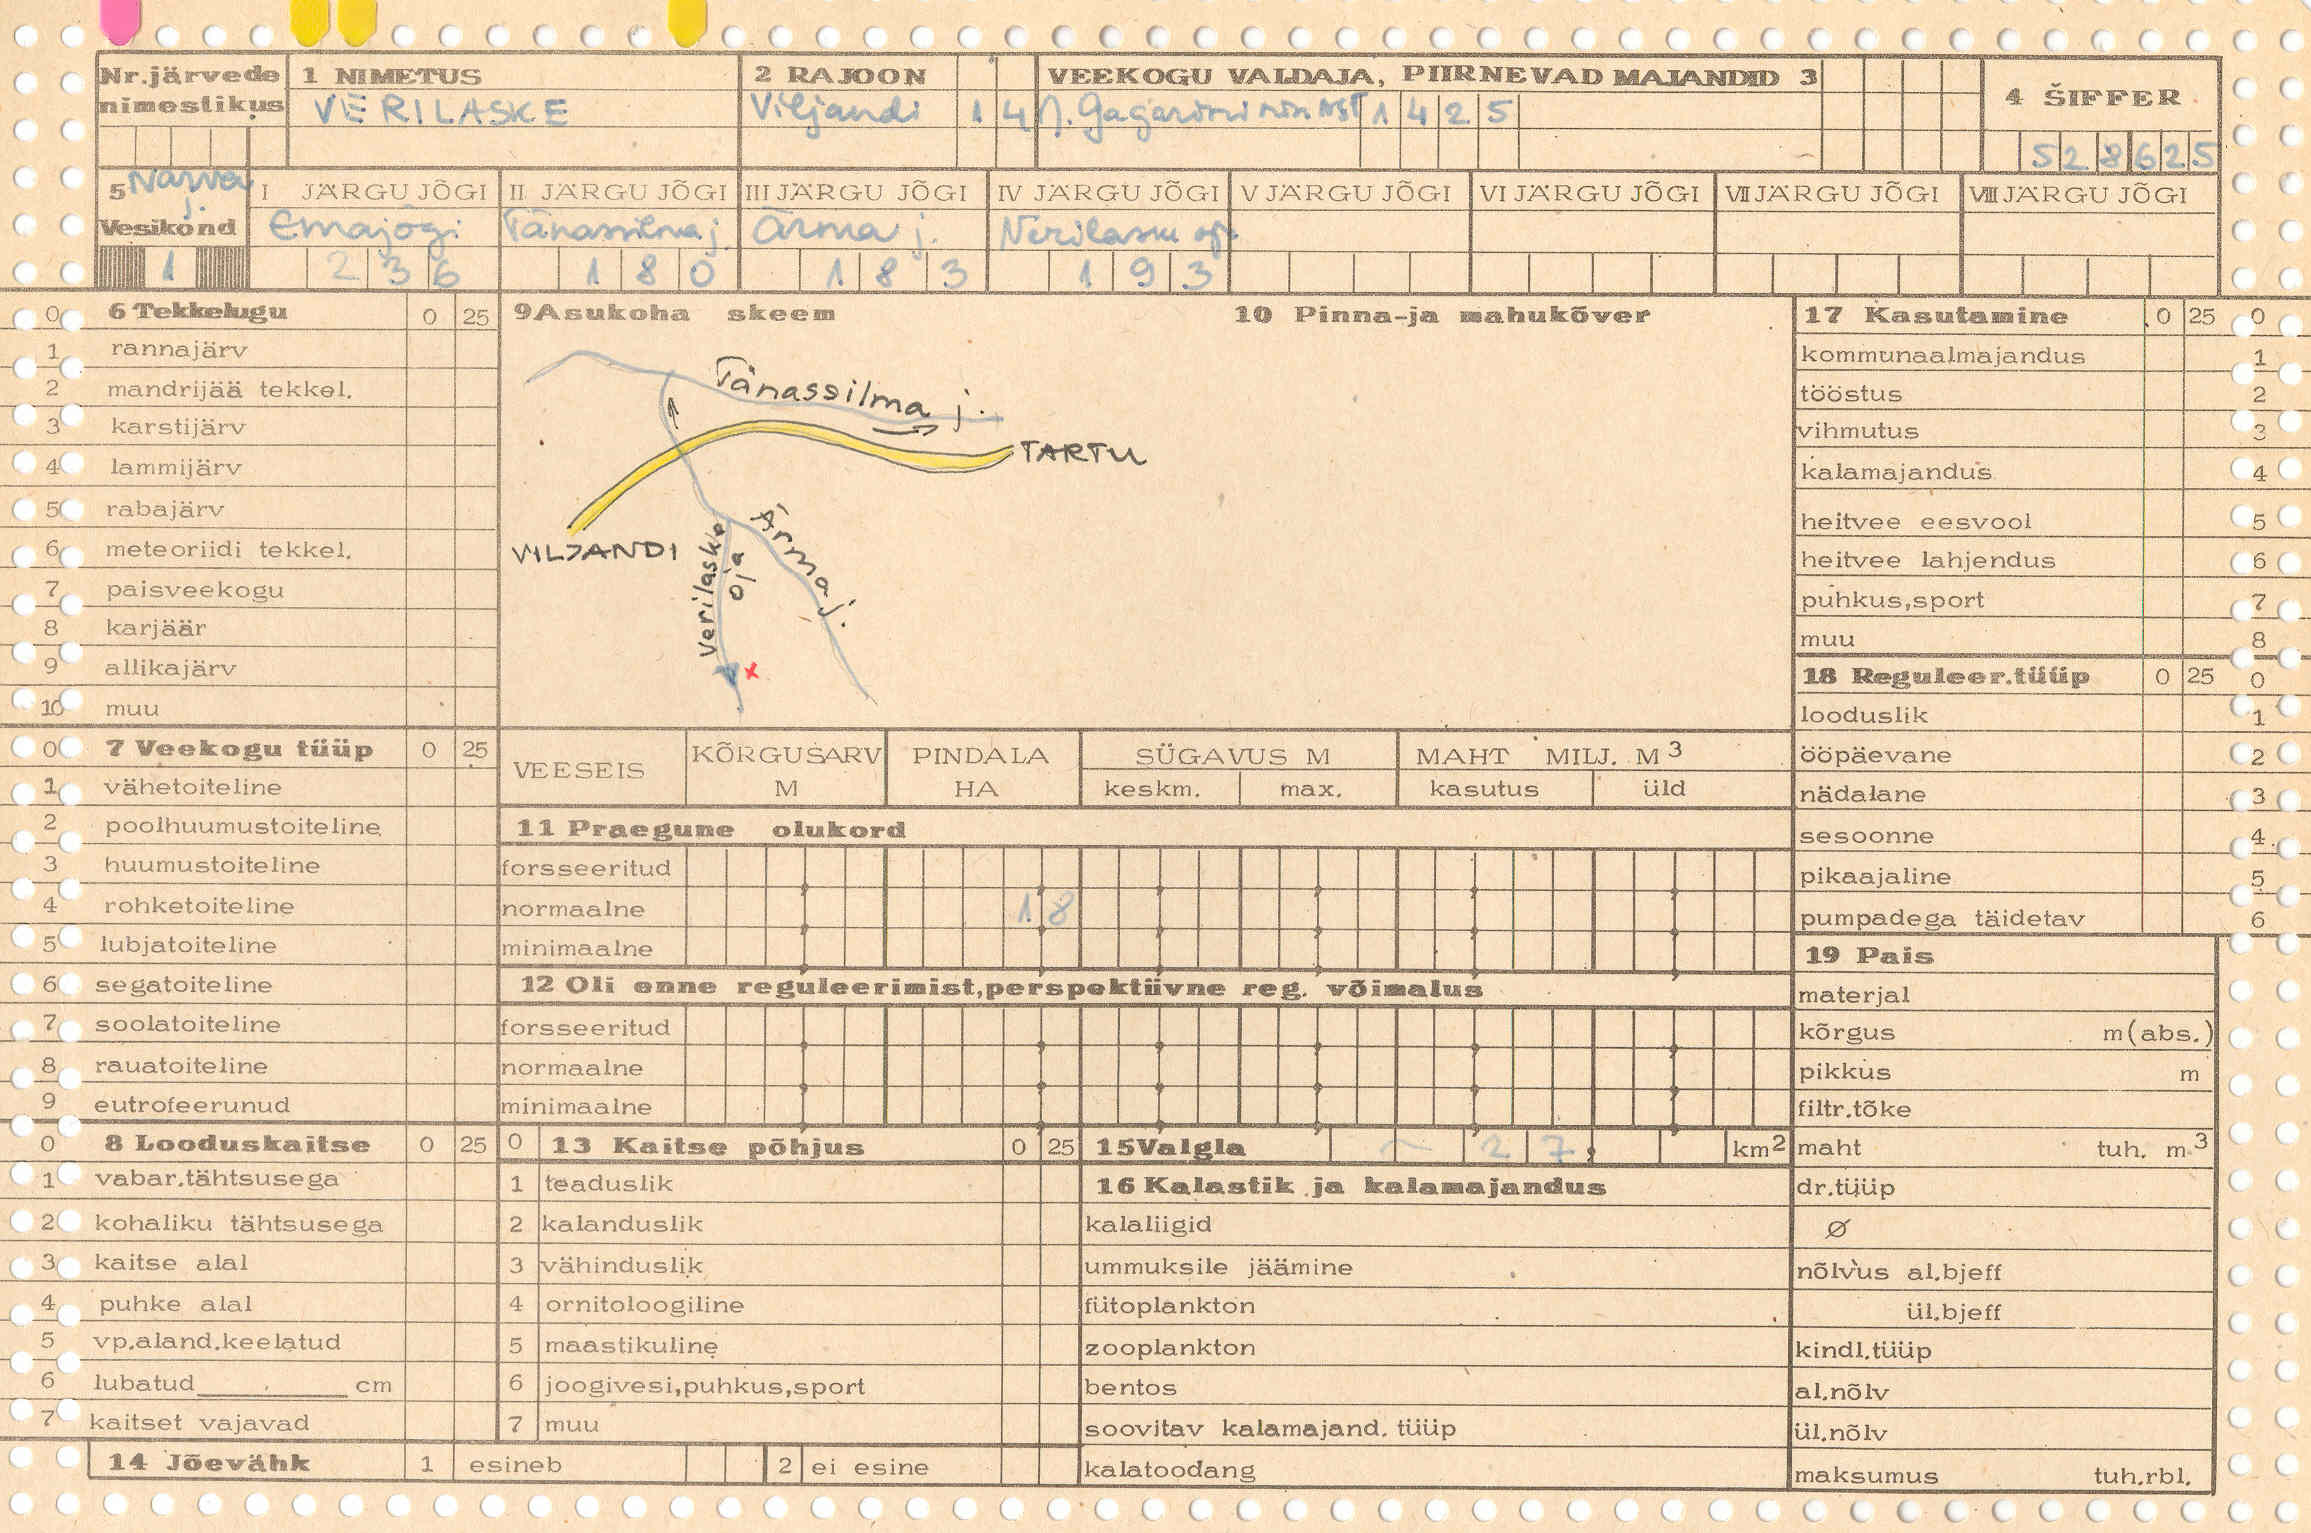 Nr.järvede nimestikus
1 NIMETUS
VERILASKE
2 RAJOON
Viljandi 1 4
VEEKOGU VALDAJA, PIIRNEVAD MAJANDID 3
J. Gagarini nim 1 4 2 5
4 ŠIFFER
5 2 8 6 2 5
5 Narva j.
Vesikond
1
I JÄRGU JÕGI
Emajõgi
2 3 6
II JÄRGU JÕGI
Tänassilma j.
1 8 0
III JÄRGU JÕGI
Ärma j.
1 8 3
IV JÄRGU JÕGI
Verilaske oja
1 9 3
V JÄRGU JÕGI
VI JÄRGU JÕGI
VII JÄRGU JÕGI
VIII JÄRGU JÕGI
6 Tekkelugu 0 25
0
1 rannajärv
2 mandrijää tekkel.
3 karstijärv
4 lammijärv
5 rabajärv
6 meteoriidi tekkel.
7 paisveekogu
8 karjäär
9 allikajärv
10 muu
0 7 Veekogu tüüp 0 25
1 vähetoiteline
2 poolhuumustoiteline
3 huumustoiteline
4 rohketoiteline
5 lubjatoiteline
6 segatoiteline
7 soolatoiteline
8 rauatoiteline
9 eutrofeerunud
0 8 Looduskaitse 0 25
1 vabar.tähtsusega
2 kohaliku tähtsusega
3 kaitse alal
4 puhke alal
5 vp.aland.keelatud
6 lubatud cm
7 kaitset vajavad
9 Asukoha skeem
Tänassilma j.
TARTU
VILJANDI
Verilaske oja
Ärma j.
x
10 Pinna-ja mahukõver
VEESEIS
KÕRGUSARV M
PINDALA HA
SÜGAVUS M
keskm. max.
MAHT MILJ. M3
kasutus üld
11 Praegune olukord
forsseeritud
normaalne 1 8
minimaalne
12 Oli enne reguleerimist,perspektiivne reg. võimalus
forsseeritud
normaalne
minimaalne
0 13 Kaitse põhjus 0 25
1 teaduslik
2 kalanduslik
3 vähinduslik
4 ornitoloogiline
5 maastikuline
6 joogivesi,puhkus,sport
7 muu
14 Jõevähk 1 esineb 2 ei esine
15 Valgla ~ 2 7 , km2
16 Kalastik ja kalamajandus
kalaliigid
ummuksile jäämine
fütoplankton
zooplankton
bentos
soovitav kalamajand. tüüp
kalatoodang
17 Kasutamine 0 25 0
kommunaalmajandus 1
tööstus 2
vihmutus 3
kalamajandus 4
heitvee eesvool 5
heitvee lahjendus 6
puhkus,sport 7
muu 8
18 Reguleer.tüüp 0 25 0
looduslik 1
ööpäevane 2
nädalane 3
sesoonne 4
pikaajaline 5
pumpadega täidetav 6
19 Pais
materjal
kõrgus m(abs.)
pikkus m
filtr.tõke
maht tuh. m3
dr.tüüp
Ø
nõlvus al.bjeff
ül.bjeff
kindl.tüüp
al.nõlv
ül.nõlv
maksumus tuh.rbl.